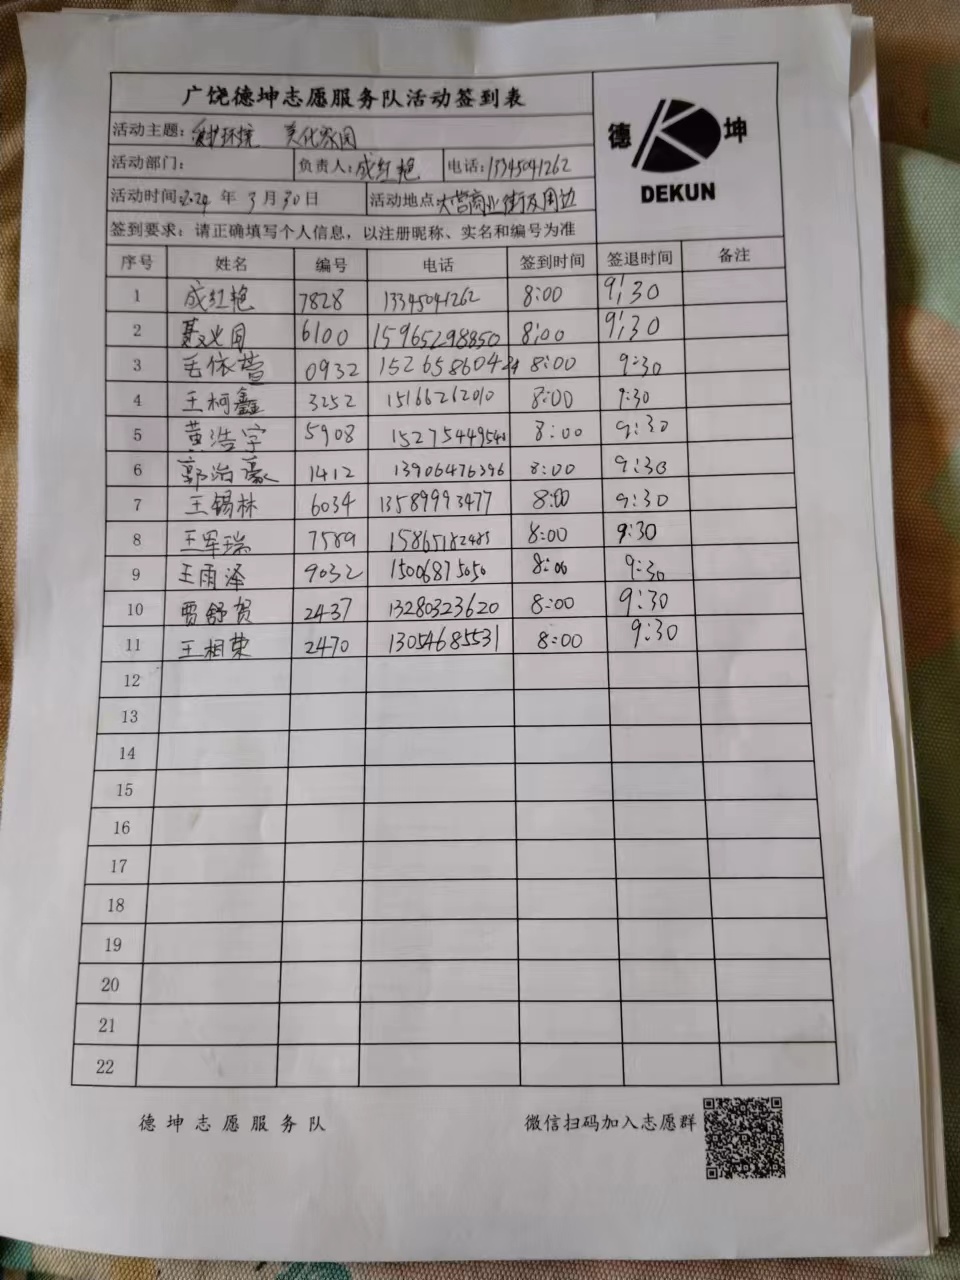 广饶德坤志愿服务队活动签到表
德 坤
DEKUN
活动主题：爱护环境 美化家园
活动部门： 负责人：成红艳 电话：13345041262
活动时间：2024 年 3 月 30 日 活动地点：大营商业街及周边
签到要求：请正确填写个人信息，以注册昵称、实名和编号为准
序号 姓名 编号 电话 签到时间 签退时间 备注
1 成红艳 7828 13345041262 8:00 9:30
2 6100 15965298850 8:00 9:30
3 毛依萱 0932 8:00 9:30
4 王柯鑫 3252 15166262010 8:00 9:30
5 黄浩宇 5908 8:00 9:30
6 郭治豪 1412 13906476396 8:00 9:30
7 王锡林 6034 13589993477 8:00 9:30
8 王军瑞 7589 15865182485 8:00 9:30
9 王雨泽 9032 15006815050 8:00 9:30
10 贾舒贺 2437 13280323620 8:00 9:30
11 王相荣 2470 13054685531 8:00 9:30
12
13
14
15
16
17
18
19
20
21
22
德坤志愿服务队 微信扫码加入志愿群